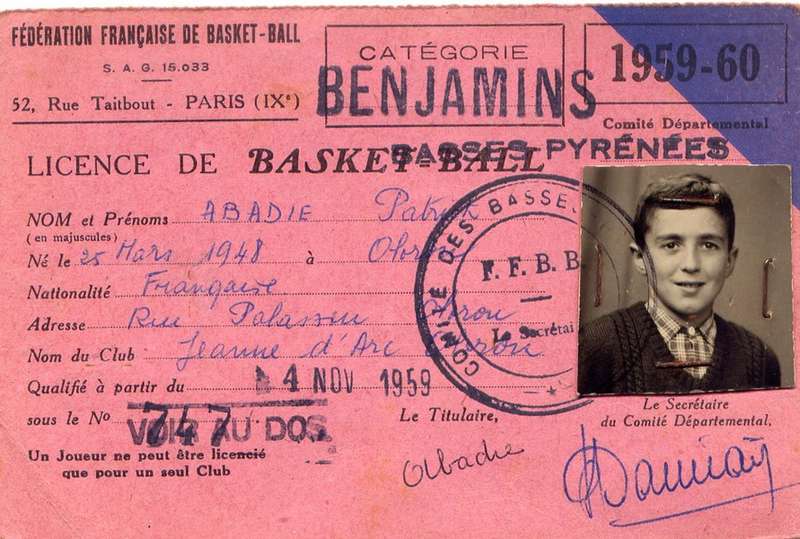 FÉDÉRATION FRANÇAISE DE BASKET-BALL
S. A. G. 15.033
52, Rue Taitbout - PARIS (IXe)
CATÉGORIE
BENJAMINS
1959-60
Comité Départemental
BASSES PYRÉNÉES
LICENCE DE BASKET-BALL
NOM et Prénoms ABADIE Patrick
(en majuscules)
Né le 25 Mars 1948 à Oloron
Nationalité Française
Adresse Rue Palassou Oloron
Nom du Club Jeanne d'Arc Oloron
Qualifié à partir du 4 NOV 1959
sous le No 747
VOIR AU DOS
Un Joueur ne peut être licencié
que pour un seul Club
COMITÉ DES BASSES
F. F. B. B
Le Secrétai
Le Titulaire,
Abadie
Le Secrétaire
du Comité Départemental,